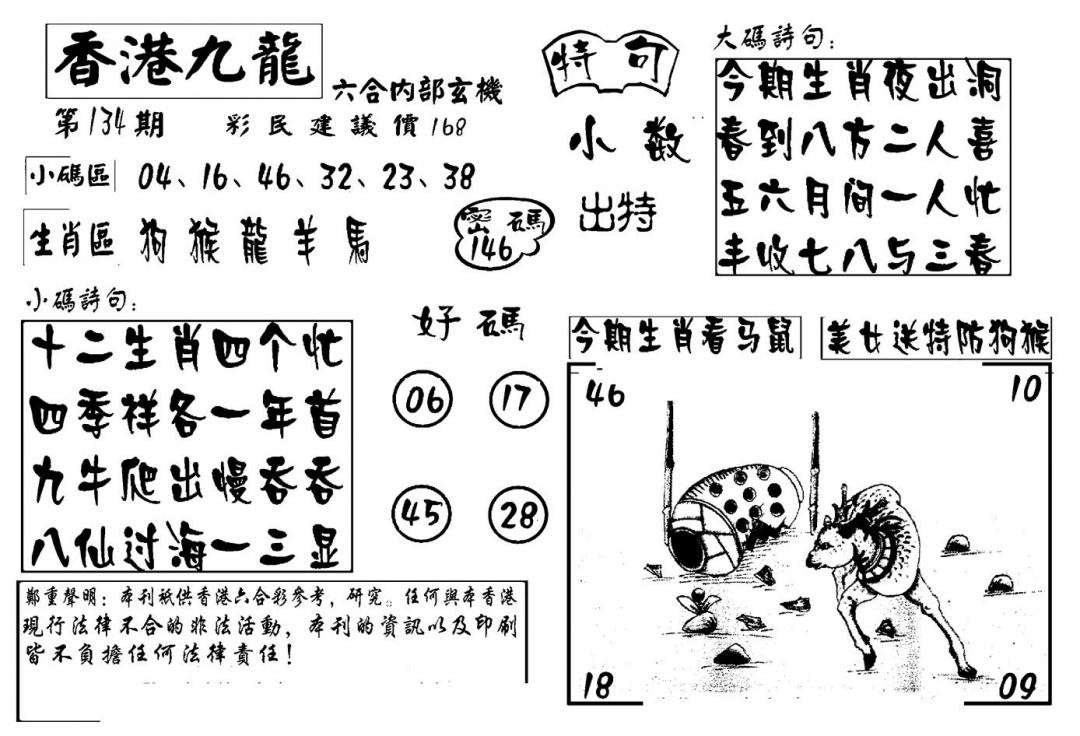 香港九龍
六合内部玄機
第134期 彩民建議價168
小碼區 04、16、46、32、23、38
生肖區 狗猴龍羊馬
密碼
146
特句
小数
出特
大碼詩句：
今期生肖夜出洞
春到八方二人喜
五六月间一人忙
丰收七八与三春
小碼詩句：
十二生肖四个忙
四季祥各一年首
九牛爬出慢吞吞
八仙过海一三显
好碼
06 17
45 28
今期生肖看马鼠
美女送特防狗猴
46 10
18 09
鄭重聲明：本刊衹供香港六合彩參考，研究。任何與本香港
現行法律不合的非法活動，本刊的資訊以及印刷
皆不負擔任何法律責任！